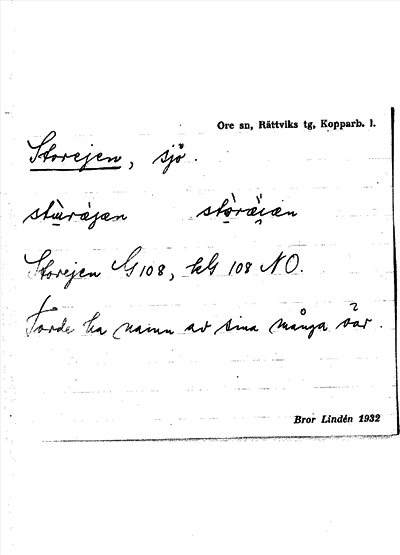 Ore sn, Rättviks tg, Kopparb. l.
Storejen, sjö.
Storejen G 108, kG 108 NO.
Torde ha namn av sina många
Bror Lindén 1932